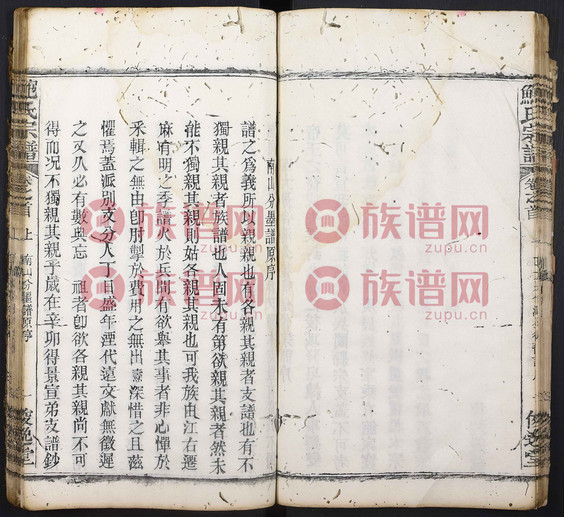 鮑氏宗譜
卷之首
俊逸堂
南山分墨譜原序
譜之爲義所以親親也有各親其親者支譜也有不
獨親其親者族譜也人固未有第欲親其親者然未
能不獨親其親則姑各親其親也可我族由江右遷
麻有明之季譜火於兵間有欲舉其事者非心憚於
釆輯之無由卽肘掣於費用之無出 深惜之且茲
懼焉蓋派別支分人丁日盛年湮代遠文獻無徵遲
之又久必有數典忘 祖者卽欲各親其親尚不可
得而况不獨親其親乎歲在辛卯得景宣弟支譜鈔
鮑氏宗譜
卷之首 上
南山分 譜原序
一
俊逸堂
族谱网
zupu.cn
族谱网
zupu.cn
族谱网
zupu.cn
族谱网
zupu.cn